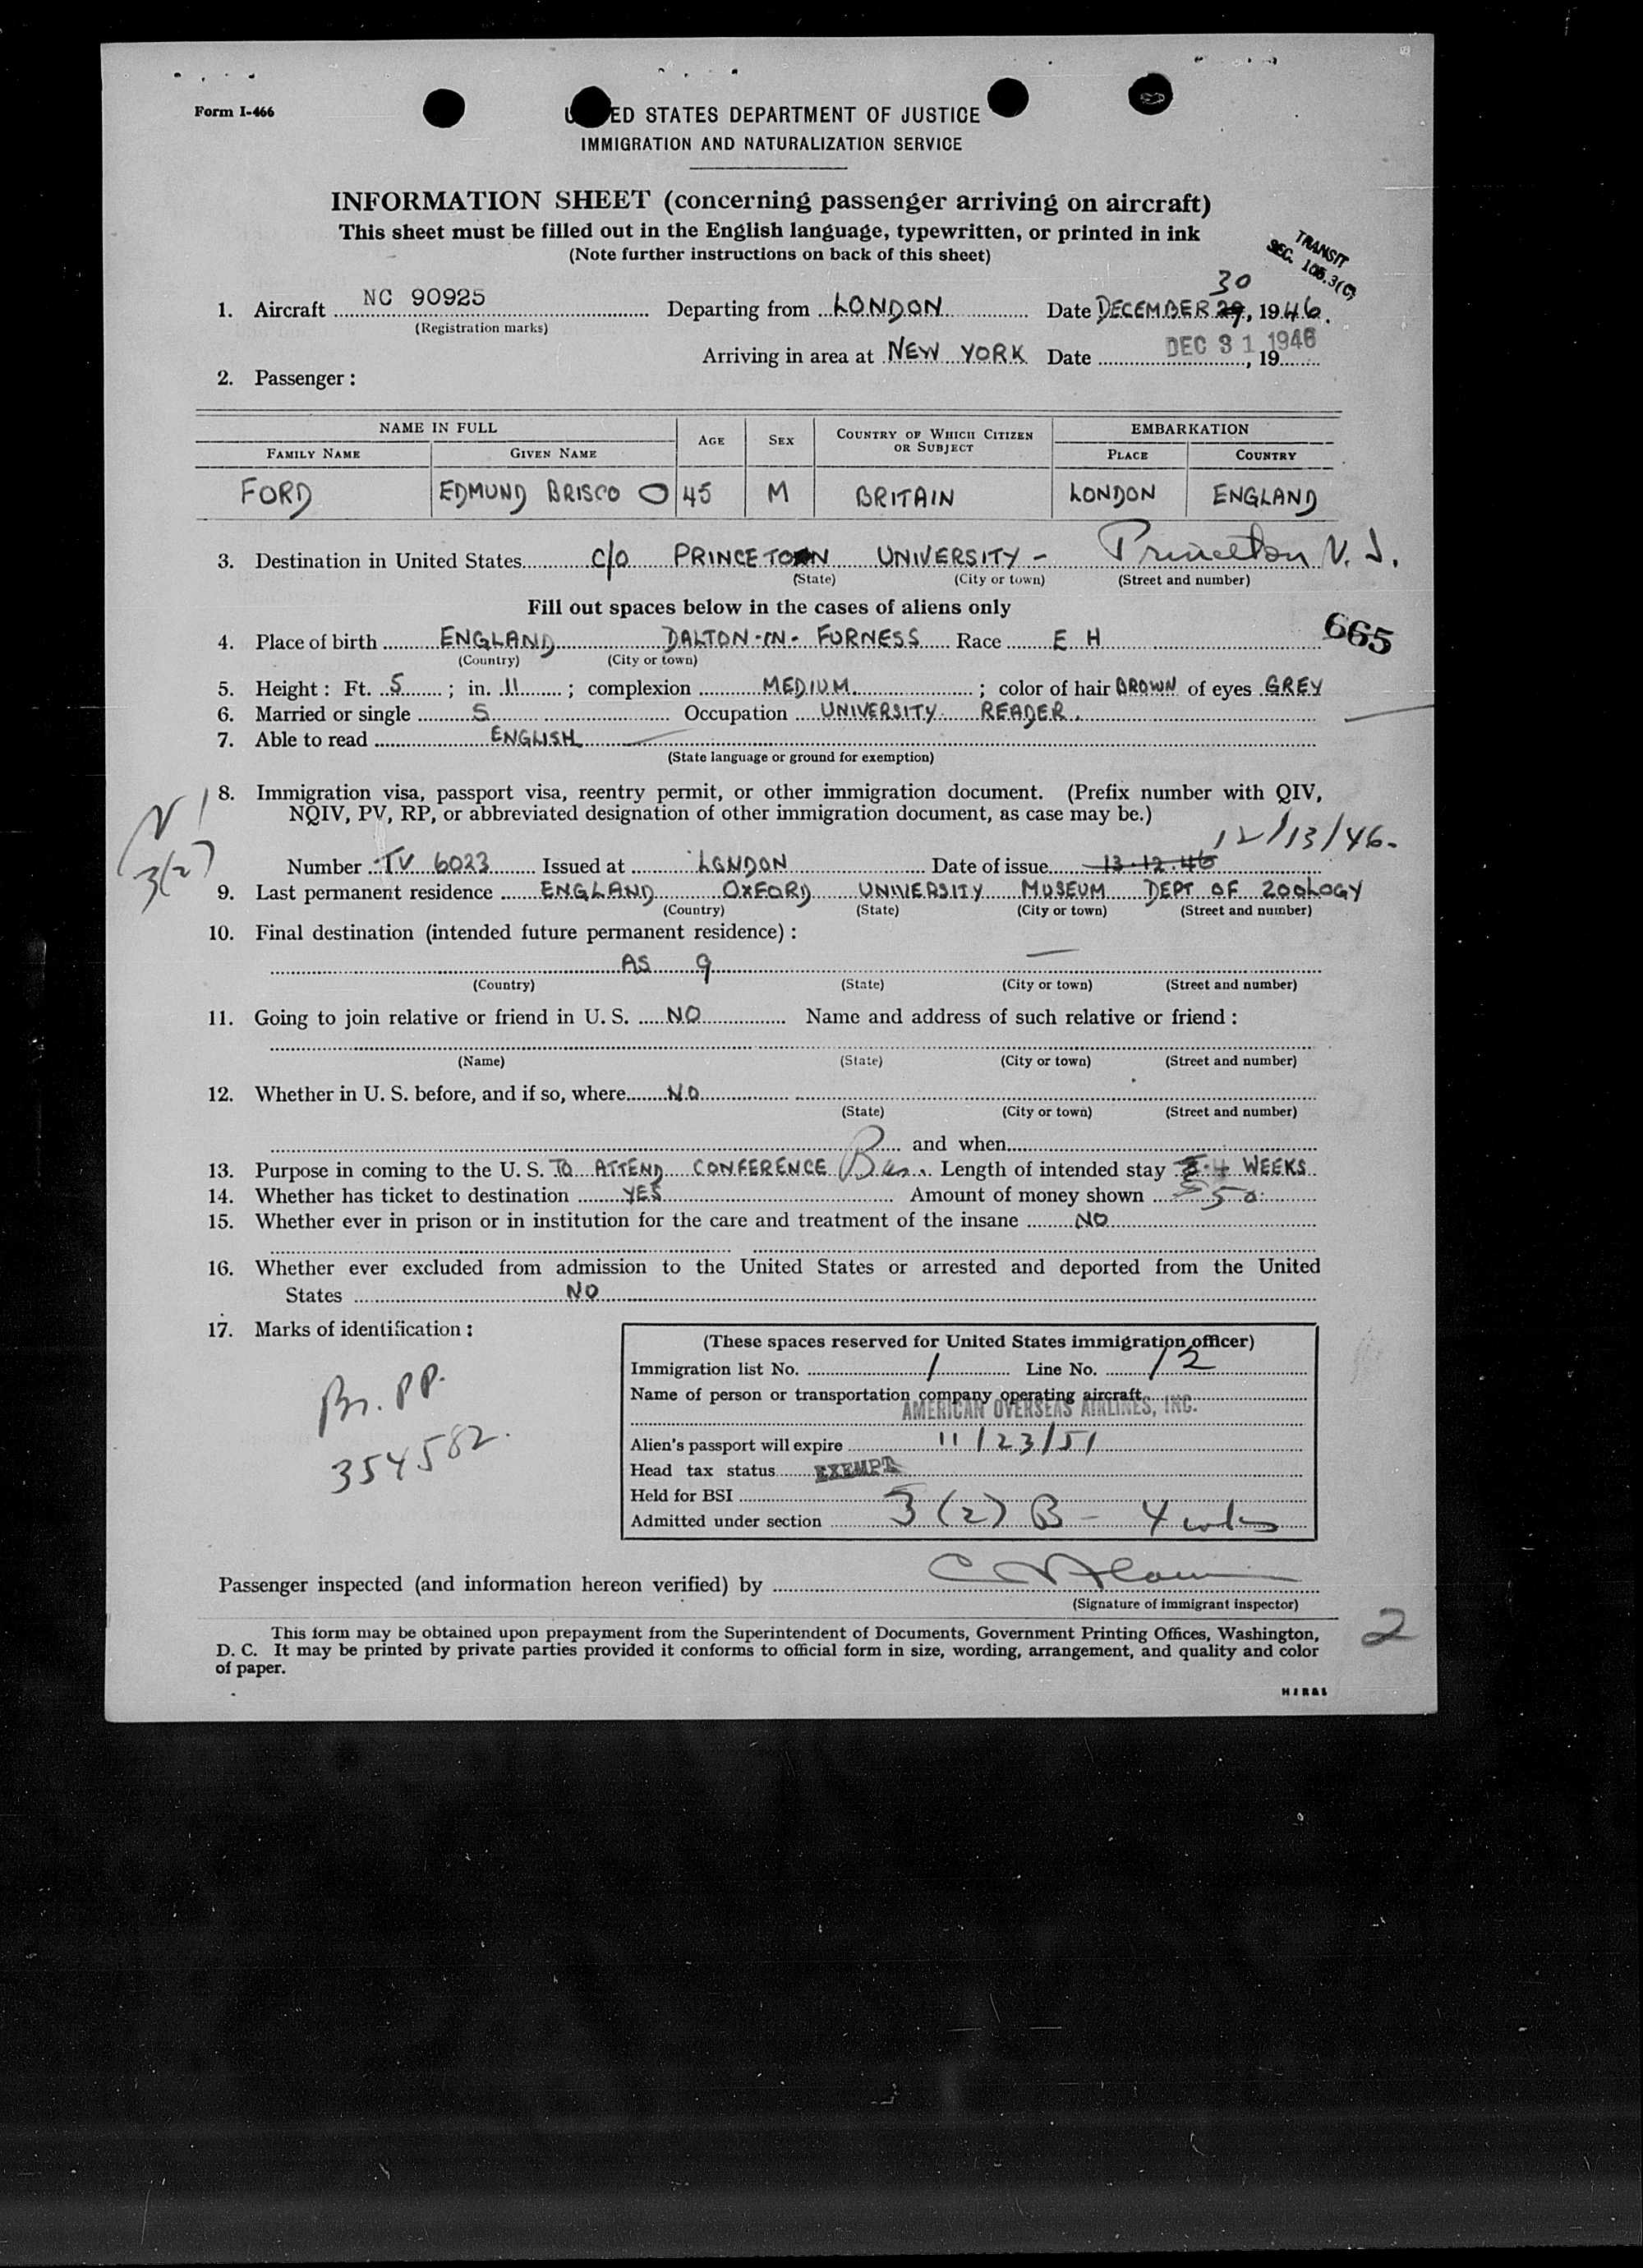 Form I-466
ED STATES DEPARTMENT OF JUSTICE
IMMIGRATION AND NATURALIZATION SERVICE
INFORMATION SHEET (concerning passenger arriving on aircraft)
This sheet must be filled out in the English language, typewritten, or printed in ink
(Note further instructions on back of this sheet)
TRANSIT
SEC. 105.3(C)
30
1. Aircraft NC 90925 Departing from LONDON Date DECEMBER 29, 1946.
(Registration marks)
Arriving in area at NEW YORK Date DEC 31 1946, 19
2. Passenger:
NAME IN FULL AGE SEX COUNTRY OF WHICH CITIZEN OR SUBJECT EMBARKATION
FAMILY NAME GIVEN NAME PLACE COUNTRY
FORD EDMUND BRISCO 45 M BRITAIN LONDON ENGLAND
3. Destination in United States C/O PRINCETON UNIVERSITY - Princeton N. J.
(State) (City or town) (Street and number)
Fill out spaces below in the cases of aliens only
665
4. Place of birth ENGLAND DALTON-IN-FURNESS Race E H
(Country) (City or town)
5. Height: Ft. 5; in. 11; complexion MEDIUM; color of hair BROWN of eyes GREY
6. Married or single S Occupation UNIVERSITY READER.
7. Able to read ENGLISH
(State language or ground for exemption)
8. Immigration visa, passport visa, reentry permit, or other immigration document. (Prefix number with QIV,
NQIV, PV, RP, or abbreviated designation of other immigration document, as case may be.)
12/13/46.
3(2)
Number TV 6023 Issued at LONDON Date of issue 13.12.46
9. Last permanent residence ENGLAND OXFORD UNIVERSITY MUSEUM DEPT OF ZOOLOGY
(Country) (State) (City or town) (Street and number)
10. Final destination (intended future permanent residence):
AS 9 —
(Country) (State) (City or town) (Street and number)
11. Going to join relative or friend in U. S. NO Name and address of such relative or friend:
(Name) (State) (City or town) (Street and number)
12. Whether in U. S. before, and if so, where NO
(State) (City or town) (Street and number)
and when
13. Purpose in coming to the U. S. TO ATTEND CONFERENCE Bus. Length of intended stay 4 WEEKS
14. Whether has ticket to destination YES Amount of money shown 50
15. Whether ever in prison or in institution for the care and treatment of the insane NO
16. Whether ever excluded from admission to the United States or arrested and deported from the United
States NO
17. Marks of identification:
Br. PP.
354582.
(These spaces reserved for United States immigration officer)
Immigration list No. 1 Line No. 12
Name of person or transportation company operating aircraft
AMERICAN OVERSEAS AIRLINES, INC.
Alien's passport will expire 11/23/51
Head tax status EXEMPT
Held for BSI
Admitted under section 3(2) B - 4 wks
Passenger inspected (and information hereon verified) by
(Signature of immigrant inspector)
2
This form may be obtained upon prepayment from the Superintendent of Documents, Government Printing Offices, Washington,
D. C. It may be printed by private parties provided it conforms to official form in size, wording, arrangement, and quality and color
of paper.